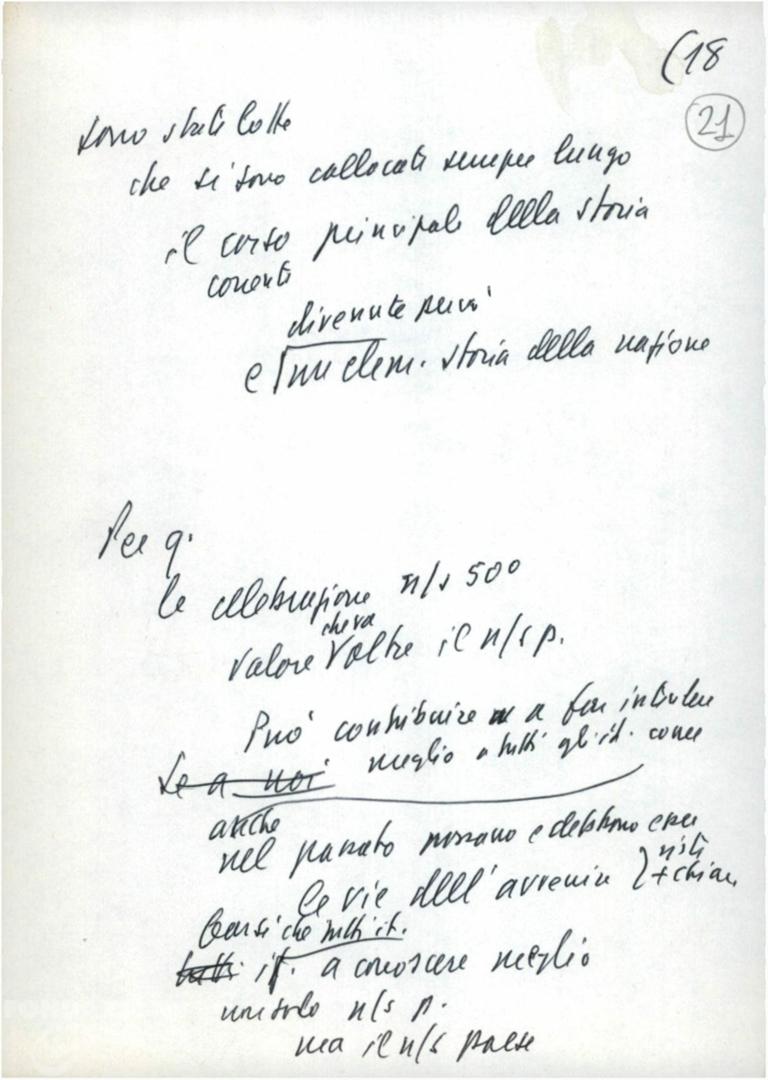 (18
21
sono stati lotte
che si sono collocati sempre lungo
il corso principale della storia
correnti
divenute più
e nuclem. storia della nazione
Per q.
la celebrazione n/s 500
che va
valore oltre il n/s p.
Può contribuire a far intendere
Se a noi meglio a tutti gli it. come
anche
nel passato possano e debbono essere
viste
le vie dell'avvenire + chiare
che tutti it.
tutti it. a conoscere meglio
non solo n/s p.
ma il n/s paese